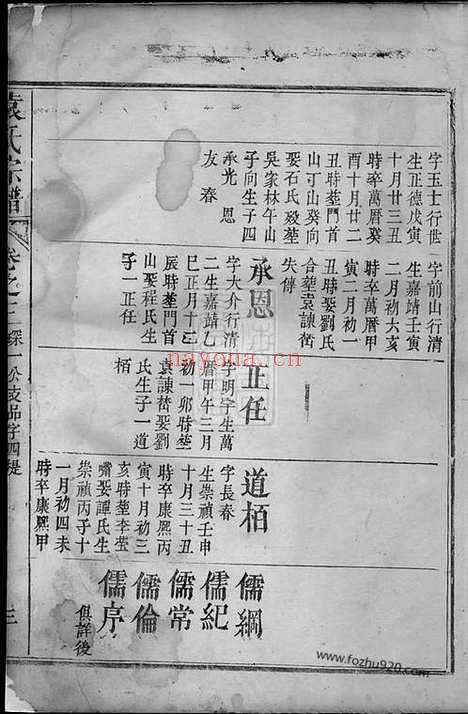 字玉士行世
生正德戊寅
十月廿三丑
時卒萬曆癸
酉十月廿二
丑時塟門首
山丁山癸向
娶石氏歿塟
吳家林午山
子向生子四
承光 恩
友 春
字前山行清
生嘉靖壬寅
二月初六亥
時卒萬曆甲
寅二月初一
丑時娶劉氏
合塟袁諫嵜
失傳
承恩
字大介行清
二生嘉靖乙
巳正月十三
辰時塟門首
山娶程氏生
子一正任
正任
字明宇生萬
曆甲午三月
初一卯時塟
袁諫嵜娶劉
氏生子一道
栢
道栢
字長春
生崇禎壬申
十月三十丑
時卒康熙丙
寅十月初三
亥時塟李瑩
嘴娶譚氏生
崇禎丙子十
一月初四未
時卒康熙甲
儒綱
儒紀
儒常
儒倫
儒序
俱詳後
袁氏宗譜
卷之二深一公支品字四提
三
nayona.cn
www.fozhu920.com